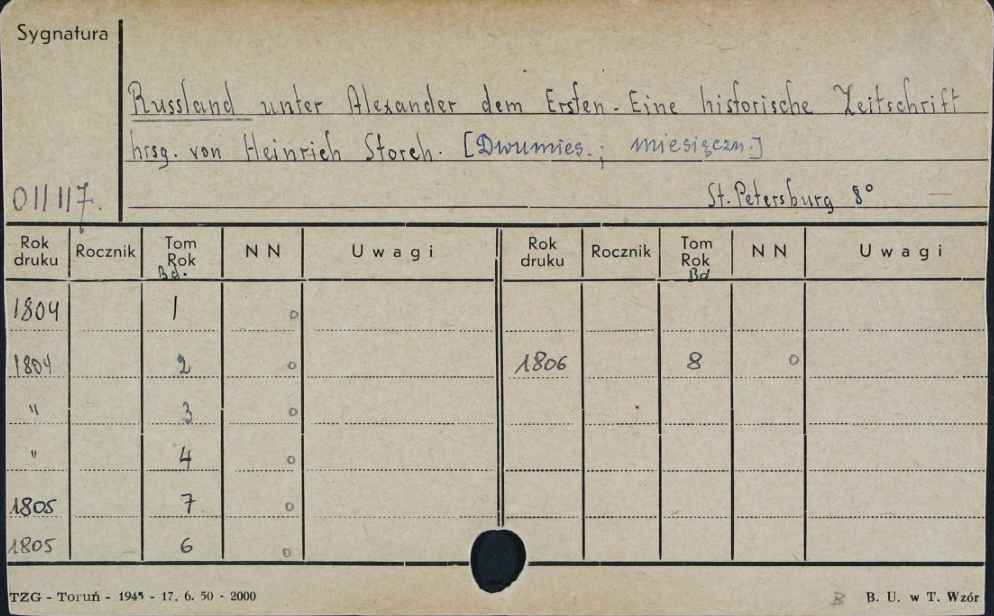 Sygnatura
Russland unter Alexander dem Ersten. Eine historische Zeitschrift
hrsg. von Heinrich Storch. [Dwumies.; miesięczn.]
011117.
St. Petersburg 8°
Rok druku Rocznik Tom Rok Bd. N N Uwagi Rok druku Rocznik Tom Rok Bd N N Uwagi
1804 1 o
1804 2 o 1806 8 o
" 3 o
" 4 o
1805 7 o
1805 6 o
TZG - Toruń - 1945 - 17. 6. 50 - 2000 B. U. w T. Wzór